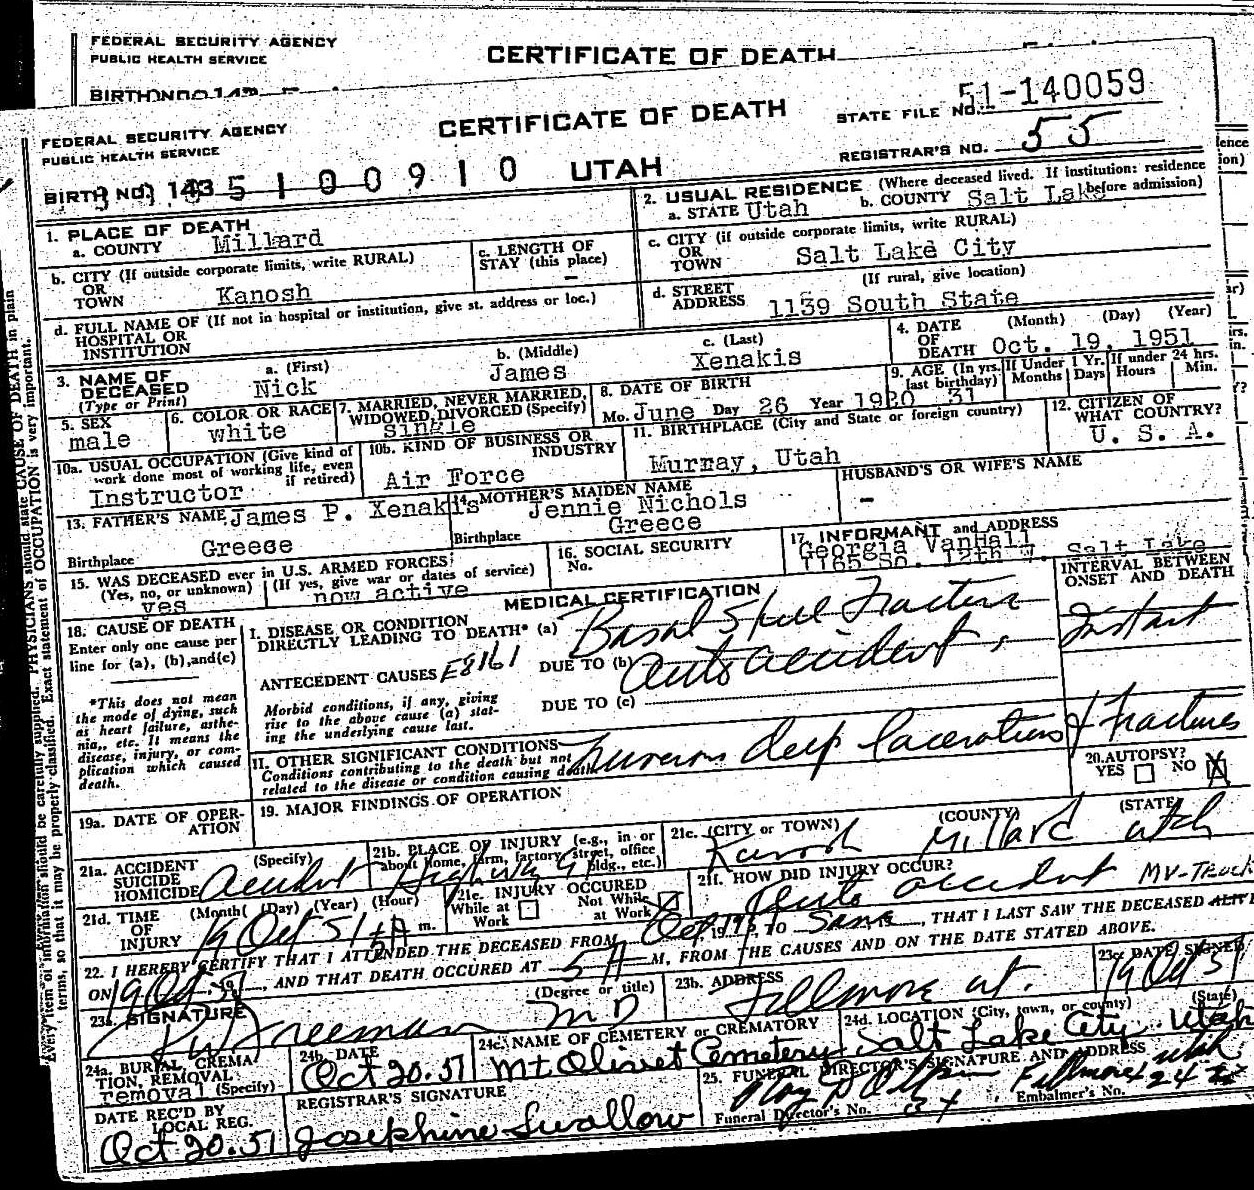 FEDERAL SECURITY AGENCY
PUBLIC HEALTH SERVICE
CERTIFICATE OF DEATH
BIRTH NO. 143
FEDERAL SECURITY AGENCY
PUBLIC HEALTH SERVICE
CERTIFICATE OF DEATH
STATE FILE NO. 51-140059
BIRTH NO. 143 5 1 0 0 9 1 0 UTAH
REGISTRAR'S NO. 55
1. PLACE OF DEATH
a. COUNTY Millard
2. USUAL RESIDENCE (Where deceased lived. If institution: residence before admission)
a. STATE Utah b. COUNTY Salt Lake
b. CITY (If outside corporate limits, write RURAL)
OR
TOWN Kanosh
c. LENGTH OF
STAY (this place)
-
c. CITY (if outside corporate limits, write RURAL)
OR
TOWN Salt Lake City
d. FULL NAME OF (If not in hospital or institution, give st. address or loc.)
HOSPITAL OR
INSTITUTION
d. STREET (If rural, give location)
ADDRESS 1139 South State
3. NAME OF
DECEASED
(Type or Print)
a. (First)
Nick
b. (Middle)
James
c. (Last)
Xenakis
4. DATE (Month) (Day) (Year)
OF
DEATH Oct. 19, 1951
5. SEX
male
6. COLOR OR RACE
white
7. MARRIED, NEVER MARRIED,
WIDOWED, DIVORCED (Specify)
single
8. DATE OF BIRTH
Mo. June Day 26 Year 1920
9. AGE (In yrs. last birthday)
31
If Under 1 Yr.
Months Days
If under 24 hrs.
Hours Min.
10a. USUAL OCCUPATION (Give kind of
work done most of working life, even
if retired)
Instructor
10b. KIND OF BUSINESS OR
INDUSTRY
Air Force
11. BIRTHPLACE (City and State or foreign country)
Murray, Utah
12. CITIZEN OF
WHAT COUNTRY?
U. S. A.
13. FATHER'S NAME James P. Xenakis
Birthplace Greece
14. MOTHER'S MAIDEN NAME
Jennie Nichols
Birthplace Greece
HUSBAND'S OR WIFE'S NAME
-
15. WAS DECEASED ever in U.S. ARMED FORCES?
(Yes, no, or unknown) (If yes, give war or dates of service)
yes now active
16. SOCIAL SECURITY
No.
17. INFORMANT and ADDRESS
Georgia VanHall
1165 So. 12th W. Salt Lake
MEDICAL CERTIFICATION
INTERVAL BETWEEN
ONSET AND DEATH
18. CAUSE OF DEATH
Enter only one cause per
line for (a), (b), and (c)
I. DISEASE OR CONDITION
DIRECTLY LEADING TO DEATH* (a) Basal Skull Fracture
Instant
ANTECEDENT CAUSES E8161
DUE TO (b) Auto accident
*This does not mean
the mode of dying, such
as heart failure, asthe-
nia, etc. It means the
disease, injury, or com-
plication which caused
death.
Morbid conditions, if any, giving
rise to the above cause (a) stat-
ing the underlying cause last.
DUE TO (c)
II. OTHER SIGNIFICANT CONDITIONS
Conditions contributing to the death but not
related to the disease or condition causing death.
numerous deep lacerations & fractures
20. AUTOPSY?
YES NO X
19a. DATE OF OPER-
ATION
19. MAJOR FINDINGS OF OPERATION
21a. ACCIDENT (Specify)
SUICIDE
HOMICIDE Accident
21b. PLACE OF INJURY (e.g., in or
about home, farm, factory, street, office
bldg., etc.)
Highway 91
21c. (CITY or TOWN) (COUNTY) (STATE)
Kanosh Millard Utah
21d. TIME (Month) (Day) (Year) (Hour)
OF
INJURY 19 Oct 51 5 A m.
21e. INJURY OCCURED
While at Work
Not While at Work
21f. HOW DID INJURY OCCUR?
Auto accident MV-Truck
22. I HEREBY CERTIFY THAT I ATTENDED THE DECEASED FROM Oct 19, 19 TO Same, THAT I LAST SAW THE DECEASED ALIVE
ON 19 Oct 51, AND THAT DEATH OCCURED AT 5 A M, FROM THE CAUSES AND ON THE DATE STATED ABOVE.
23a. SIGNATURE (Degree or title)
Freeman MD
23b. ADDRESS
Fillmore ut.
23c. DATE SIGNED
19 Oct 51
24a. BURIAL, CREMA-
TION, REMOVAL
(Specify)
removal
24b. DATE
Oct 20. 51
24c. NAME OF CEMETERY or CREMATORY
Mt Olivet Cemetery
24d. LOCATION (City, town, or county) (State)
Salt Lake City Utah
DATE REC'D BY
LOCAL REG.
Oct 20. 51
REGISTRAR'S SIGNATURE
Josephine Swallow
25. FUNERAL DIRECTOR'S SIGNATURE AND ADDRESS
Fillmore Utah
Funeral Director's No. Embalmer's No.